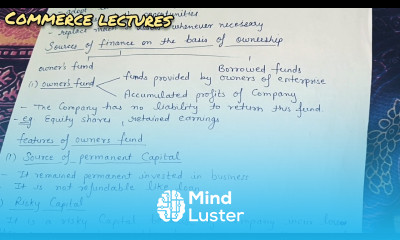 COMMERCE LECTURES
- adopt opportunities
- replace whenever necessary
Sources of finance on the basis of ownership
owner's fund Borrowed funds
(i) owner's fund funds provided by owners of enterprise
Accumulated profits of Company
- The Company has no liability to return this fund.
- eg Equity shares, retained earnings
features of owners fund
(1) Source of permanent Capital
- It remained permanent invested in business
- It is not refundable like loan
Risky Capital
- It is a risky Capital
Mind
Luster